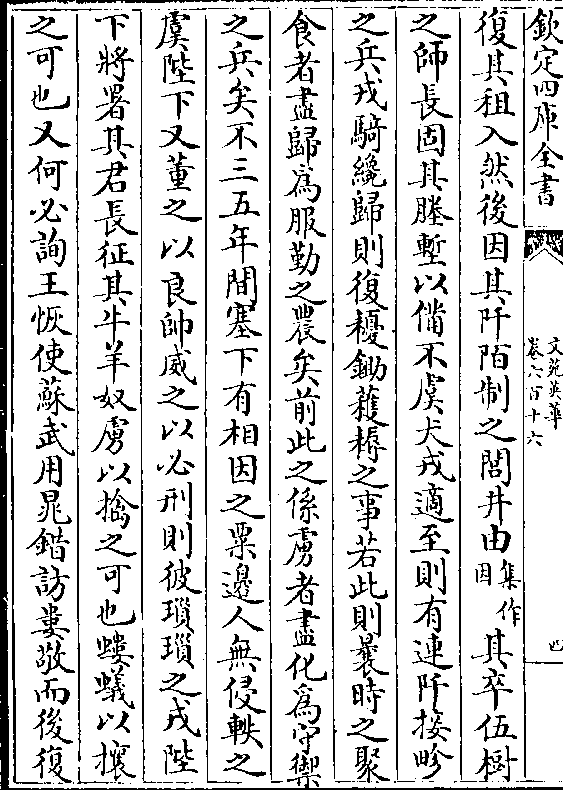 欽定四庫全書
文苑英華
卷六百十六
四
復其租入然後因其阡陌制之閭井由集作因其卒伍樹
之師長固其塍塹以備不虞犬戎適至則有連阡接畛
之兵戎騎纔歸則復耰鋤䕶耨之事若此則曩時之聚
食者盡歸為服勤之農矣前此之係虜者盡化為守禦
之兵矣不三五年間塞下有相因之粟邊人無侵軼之
虞陛下又董之以良帥威之以必刑則彼瑣瑣之戎陛
下將署其君長征其牛羊奴虜以擒之可也螻蟻以攘
之可也又何必詢王恢使蘇武用晁錯訪婁敬而後復